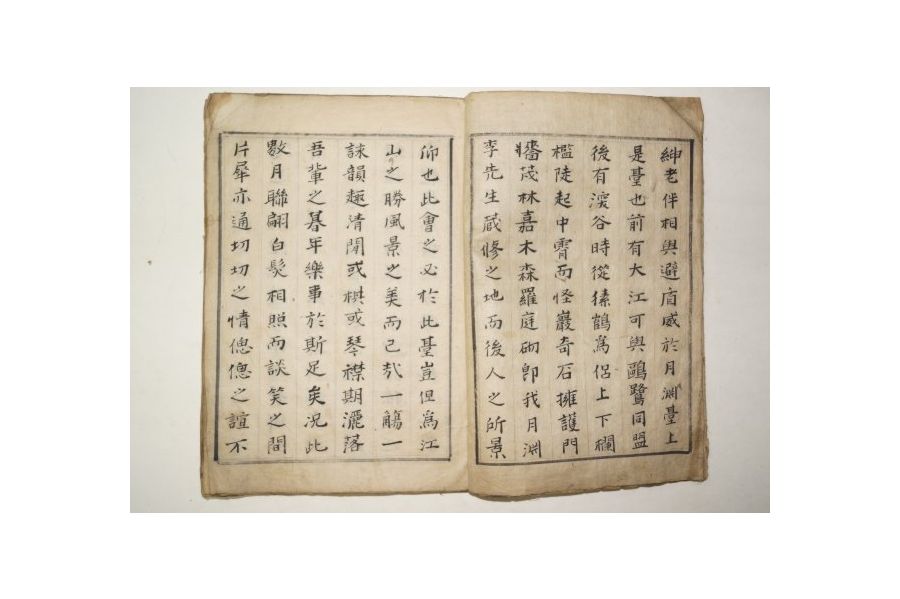 紳老伴相與避盾威於月淵臺上
是臺也前有大江可與鷗鷺同盟
後有深谷時從猿鶴爲侶上下欄
檻陡起中霄而怪巖奇石擁護門
墻茂林嘉木森羅庭砌卽我月淵
李先生藏修之地而後人之所景
仰也此會之必於此臺豈但爲江
山之勝風景之美而已哉一觴一
詠韻趣淸閒或棋或琴襟期灑落
吾輩之暮年樂事於斯足矣况此
數月聯翩白髮相照而談笑之間
片犀亦通切切之情偲偲之誼不